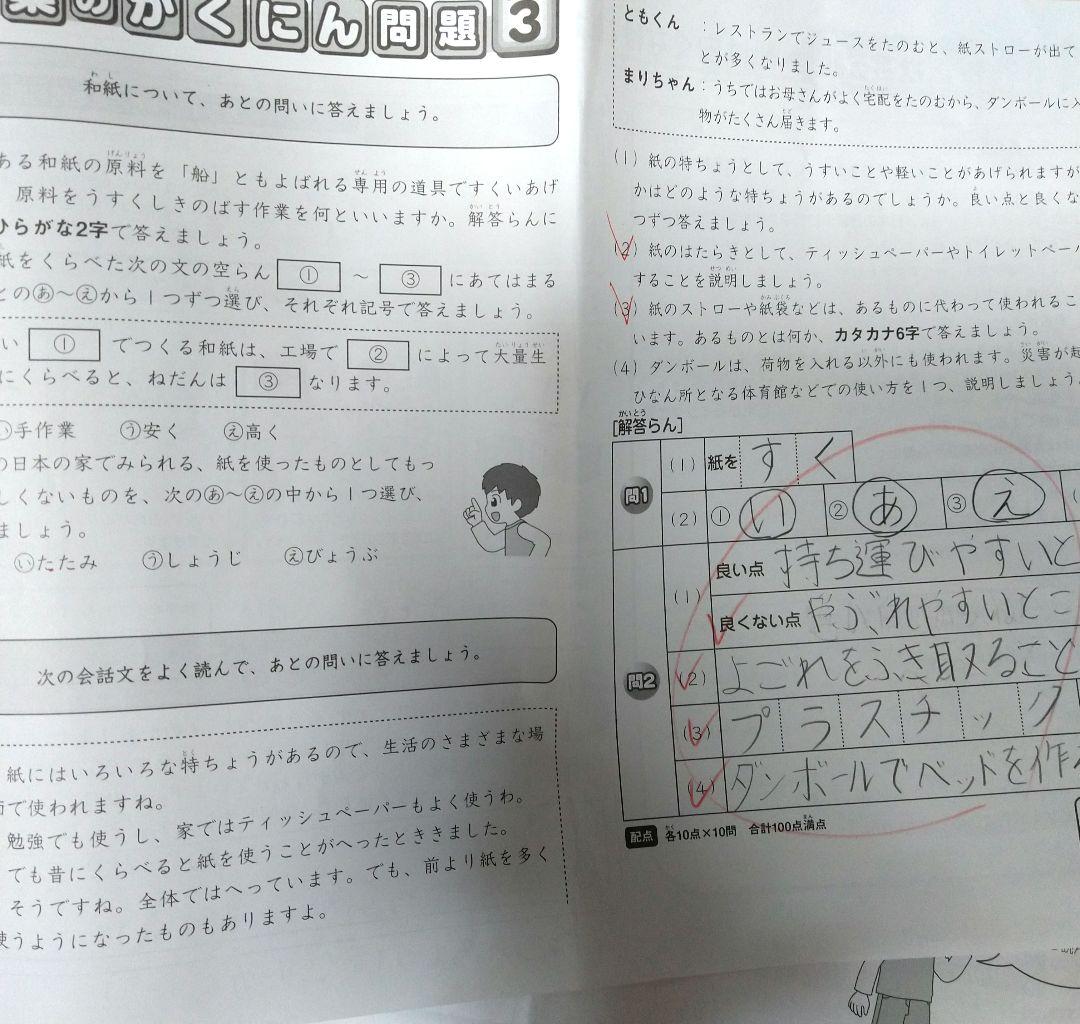 業のかくにん問題 3
和紙について、あとの問いに答えましょう。
ある和紙の原料を「船」ともよばれる専用の道具ですくいあげ
原料をうすくしきのばす作業を何といいますか。解答らんに
ひらがな2字で答えましょう。
紙をくらべた次の文の空らん ① ～ ③ にあてはまる
との㋐～㋓から1つずつ選び、それぞれ記号で答えましょう。
い ① でつくる和紙は、工場で ② によって大量生
にくらべると、ねだんは ③ なります。
㋑手作業 ㋒安く ㋓高く
の日本の家でみられる、紙を使ったものとしてもっ
しくないものを、次の㋐～㋓の中から1つ選び、
ましょう。
㋑たたみ ㋒しょうじ ㋓びょうぶ
次の会話文をよく読んで、あとの問いに答えましょう。
紙にはいろいろな特ちょうがあるので、生活のさまざまな場
所で使われますね。
勉強でも使うし、家ではティッシュペーパーもよく使うわ。
でも昔にくらべると紙を使うことがへったとききました。
そうですね。全体ではへっています。でも、前より紙を多く
使うようになったものもありますよ。
ともくん ：レストランでジュースをたのむと、紙ストローが出て
とが多くなりました。
まりちゃん：うちではお母さんがよく宅配をたのむから、ダンボールに入
物がたくさん届きます。
(1) 紙の特ちょうとして、うすいことや軽いことがあげられますが
かはどのような特ちょうがあるのでしょうか。良い点と良くな
つずつ答えましょう。
(2) 紙のはたらきとして、ティッシュペーパーやトイレットペー
することを説明しましょう。
(3) 紙のストローや紙袋などは、あるものに代わって使われるこ
います。あるものとは何か、カタカナ6字で答えましょう。
(4) ダンボールは、荷物を入れる以外にも使われます。災害が起
ひなん所となる体育館などでの使い方を1つ、説明しましょう。
[解答らん]
問1 (1) 紙を すく
(2) ① い ② あ ③ え
問2 (1) 良い点 持ち運びやすいと
良くない点 やぶれやすいとこ
(2) よごれをふき取ること
(3) プラスチック
(4) ダンボールでベッドを作る
配点 各10点×10問 合計100点満点